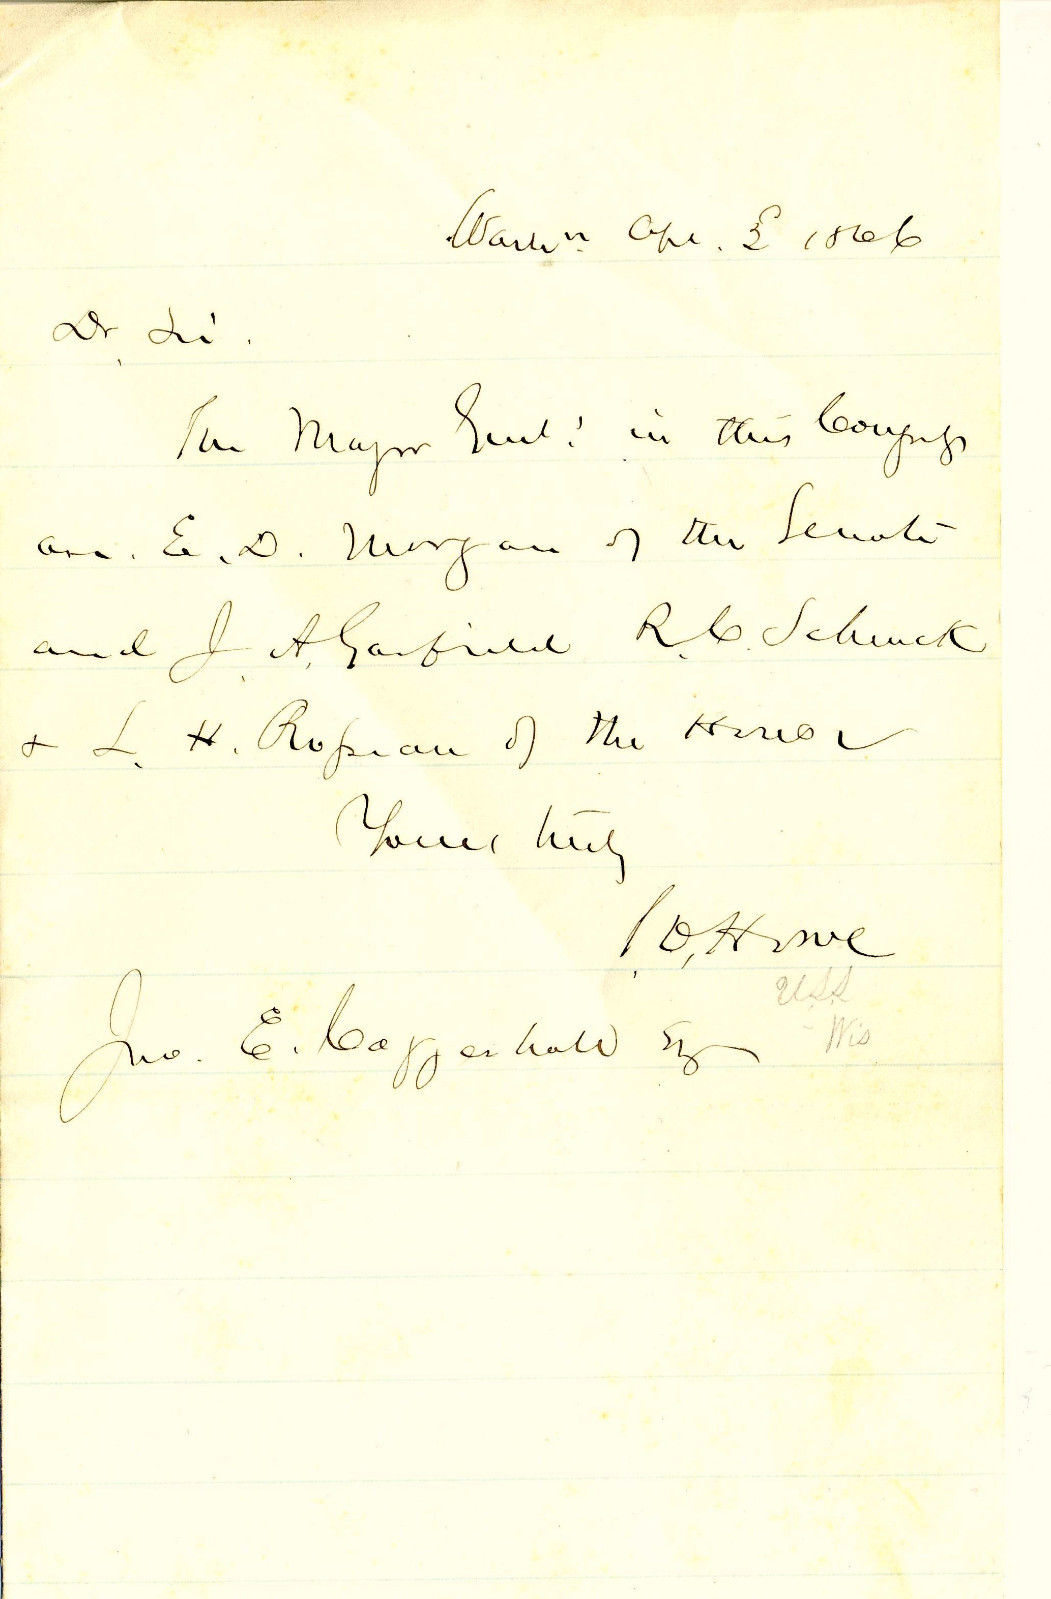 Washn. Apr. 1866
Dr. Sir.
The Major Genls. in this Congress
are. E. D. Morgan of the Senate
and J. A. Garfield R. C. Schenck
& L. H. Rosseau of the House
Yours truly
T. O. Howe
U.S.S
Wis
Jno. E. Esq